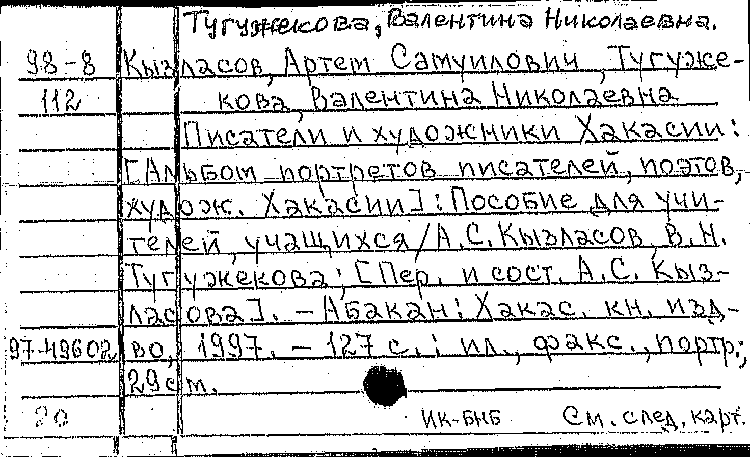 Тугужекова, Валентина Николаевна.
98-8 Кызласов, Артем Самуилович, Тугуже-
112 кова, Валентина Николаевна
Писатели и художники Хакасии:
[Альбом портретов писателей, поэтов,
худож. Хакасии]: Пособие для учи-
телей, учащихся/А.С.Кызласов, В.Н.
Тугужекова; [Пер. и сост. А.С. Кыз-
ласова]. - Абакан: Хакас. кн. изд-
97-49602 во, 1997. - 127 с.: ил., факс., портр.;
29 см.
20 ИК-БНБ См. след. карт.